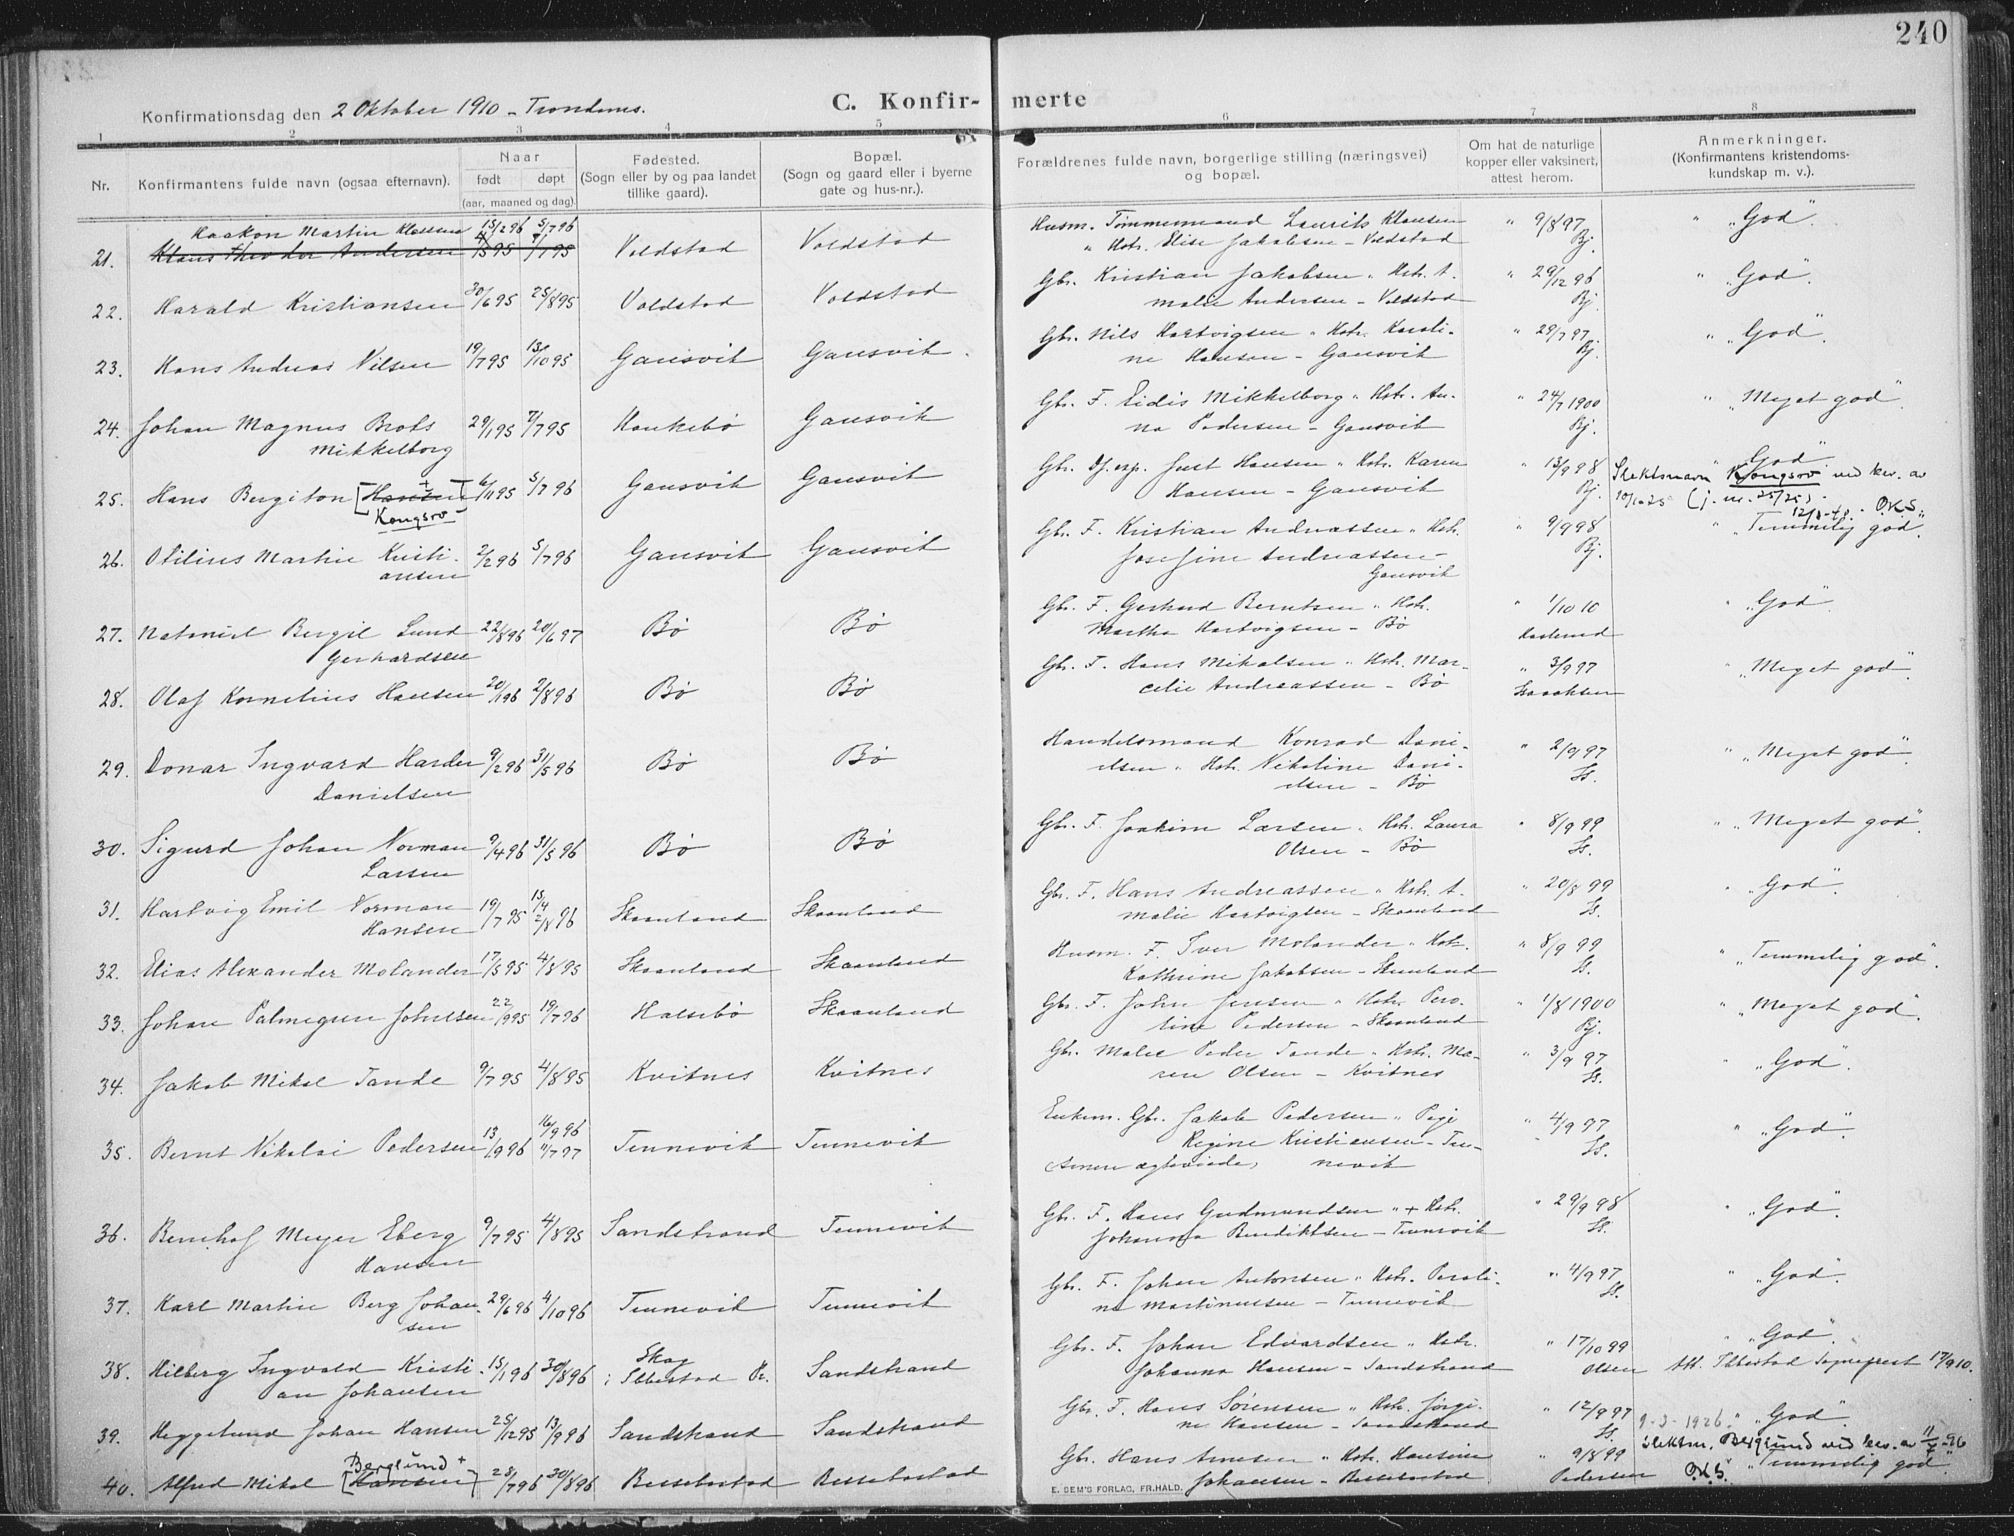 240
Konfirmationsdag den 2 Oktober 1910 - Trondenes.
C. Konfir- merte
1 2 3 4 5 6 7 8
Nr. Konfirmantens fulde navn (ogsaa efternavn). Naar født døpt (aar, maaned og dag). Fødested. (Sogn eller by og paa landet tillike gaard). Bopæl. (Sogn og gaard eller i byerne gate og hus-nr.). Forældrenes fulde navn, borgerlige stilling (næringsvei) og bopæl. Om hat de naturlige kopper eller vaksinert, attest herom. Anmerkninger. (Konfirmantens kristendoms- kundskap m. v.).
Haakon Martin Klausen 15/2 96 5/7 96 Husm. Tømmermand Laurits Klausen " 9/8 97 " "God".
21. Klaus Theodor Andersen Voldstad Voldstad " Hstr. Elise Jakobsen - Voldstad Bj.
22. Harald Kristiansen 30/6 95 25/8 95 Voldstad Voldstad Gbr. Kristian Jakobsen " Hstr. A- " 29/12 96 " "God".
malie Andersen - Voldstad Bj.
23. Hans Andreas Nilsen 19/7 95 13/10 95 Gausvik Gausvik. Gbr. Nils Hartvigsen " Hstr. Karoli- " 29/7 97 " "God".
ne Hansen - Gausvik Bj.
24. Johan Magnus Brots 29/1 95 7/7 95 Haukebø Gausvik Gbr. F. Eidis Mikkelborg " Hstr. An- " 24/7 1900 " "Meget god".
Mikkelborg na Pedersen - Gausvik Bj.
25. Hans Bergiton [Hansen] + 6/11 95 5/7 96 Gausvik Gausvik Gbr. Just Hansen " Hstr. Karen " 13/9 98 "God"
Kongsro Hansen - Gausvik Bj. Slektsnavn Kongsro ved bev. av
10/10 25 (j. nr. 25/25). OKS.
26. Otilius Martin Kristi- 2/2 96 5/7 96 Gausvik Gausvik Gbr. F. Kristian Andreassen " Hstr. " 9/9 98 " "Temmelig god".
ansen Josefine Andreassen - Bj.
Gausvik
27. Nataniel Bergil Lund 22/8 96 20/6 97 Bø Bø Gbr. F. Gerhard Berntsen " Hstr. " 1/10 10 " "God".
Gerhardsen Martha Hartvigsen - Bø
28. Olaf Kornelius Hansen 20/1 96 2/8 96 Bø Bø Gbr. F. Hans Mikalsen " Hstr. Mar- " 3/9 97 " "Meget god".
celie Andreassen - Bø Isaaksen
29. Donar Ingvard Harder 9/2 96 31/5 96 Bø Bø Handelsmand Konrad Dani- " 2/9 97 " "Meget god".
Danielsen elsen " Hstr. Nikoline Dani- Is.
elsen - Bø
30. Sigurd Johan Norman 9/4 96 31/5 96 Bø Bø Gbr. F. Joakim Larsen " Hstr. Laura " 8/9 99 " "Meget god".
Larsen Olsen - Bø Is.
31. Hartvig Emil Norman 19/7 95 Skaanland Skaanland Gbr. F. Hans Andreassen " Hstr. A- " 20/8 99 " "God".
Hansen 2/8 96 malie Hartvigsen - Skaanland Is.
32. Elias Alexander Molander 17/5 95 4/8 95 Skaanland Skaanland Husm. F. Iver Molander " Hstr. " 8/9 99 " "Temmelig god".
Kathrine Jakobsen - Skaanland Is.
33. Johan Palmegren Johnsen 22/9 95 19/7 96 Halsebø Skaanland Gbr. F. John Jensen " Hstr. Pero- " 1/8 1900 " "Meget god".
line Pedersen - Skaanland Bj.
34. Jakob Mikal Tande 9/7 95 4/8 95 Kvitnes Kvitnes Gbr. Maler Peder Tande " Hstr. Ma- " 3/9 97 " "God".
ren Olsen - Kvitnes Is.
35. Bernt Nikolai Pedersen 13/9 96 16/9 96 Tennevik Tennevik Enkem. Gbr. Jakob Pedersen " Pige " 4/9 97 " "God".
11/7 97 Regine Kristiansen - Ten- Is.
nevik
36. Bernhof Meyer Eberg 9/7 95 4/8 95 Sandstrand Tennevik Gbr. F. Hans Gudmundsen " + Hstr. " 29/9 98 " "God".
Hansen Johanna Benediktsen - Tennevik Is.
37. Karl Martin Berg Johan- 29/6 96 4/10 96 Tennevik Tennevik Gbr. F. Johan Antonsen " Hstr. Peroli- " 4/9 97 " "God".
sen ne Martinussen - Tennevik Is.
38. Hilberg Ingvald Kristi- 15/1 96 30/8 96 Skog Sandstrand Gbr. F. Johan Edvardsen " Hstr. " 17/10 99 " "God".
an Johansen i Ibbestad Pr. Johanna Hansen - Sandstrand Olsen Att. Ibbestad Sogneprest 17/9 10.
39. Heggelund Johan Hansen 25/12 95 13/9 96 Sandstrand Sandstrand Gbr. F. Hans Sørensen " Hstr. Jørgi- " 12/9 97 " "God".
ne Hansen - Sandstrand Is. 9-3-1926.
40. Alfred Mikal Berglund + [Hansen] 28/7 96 30/8 96 Bessebostad Bessebostad Gbr. Hans Arnesen " Hstr. Hansine " 9/8 99 Slektsn. Berglund ved bev. av
Johansen - Bessebostad Pedersen OKS. "Temmelig god".
E. SEM'S FORLAG, FR.HALD.